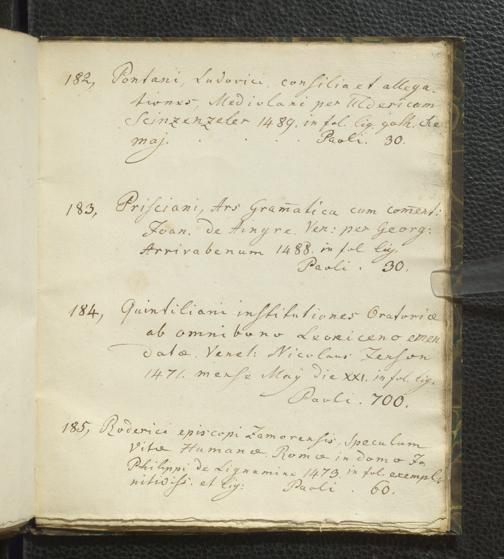 182, Pontani, Ludovici, consilia et allega-
tiones, Mediolani per Uldericum
Scinzenzeler 1489. in fol. lig. goth.
maj. . . . . Paoli. 30.
183, Prisciani, Ars Gram̄atica cum com̄ent:
Joan. de Aingre. Ven: per Georg:
Arrivabenum 1488. in fol lig.
Paoli. 30.
184, Quintiliani institutiones Oratoriæ
ab omnibono Leoniceno emen
datæ. Venet: Nicolaus Jenson
1471. mense Maÿ die XXI. in fol. lig.
Paoli. 700.
185, Roderici episcopi Zamorensis, Speculum
Vitæ Humanæ. Romæ in domo Jo.
Philippi de Lignamine 1473. in fol. exempl:
nitidiss. et lig: Paoli. 60.